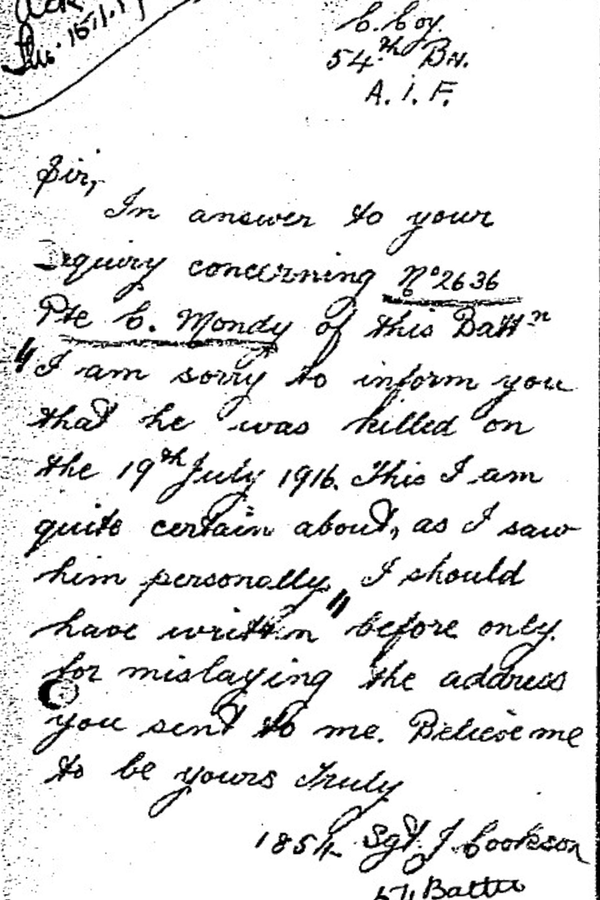 Ack
15/1/17
C. Coy.
54th Bn.
A. I. F.
Sir,
In answer to your
Inquiry concerning No 2636
Pte C. Mondy of this Battn
"I am sorry to inform you
that he was killed on
the 19th July 1916. This I am
quite certain about, as I saw
him personally" I should
have written before only
for mislaying the address
you sent to me. Believe me
to be yours truly
1854 Sgt. J. Cookson
54 Battn